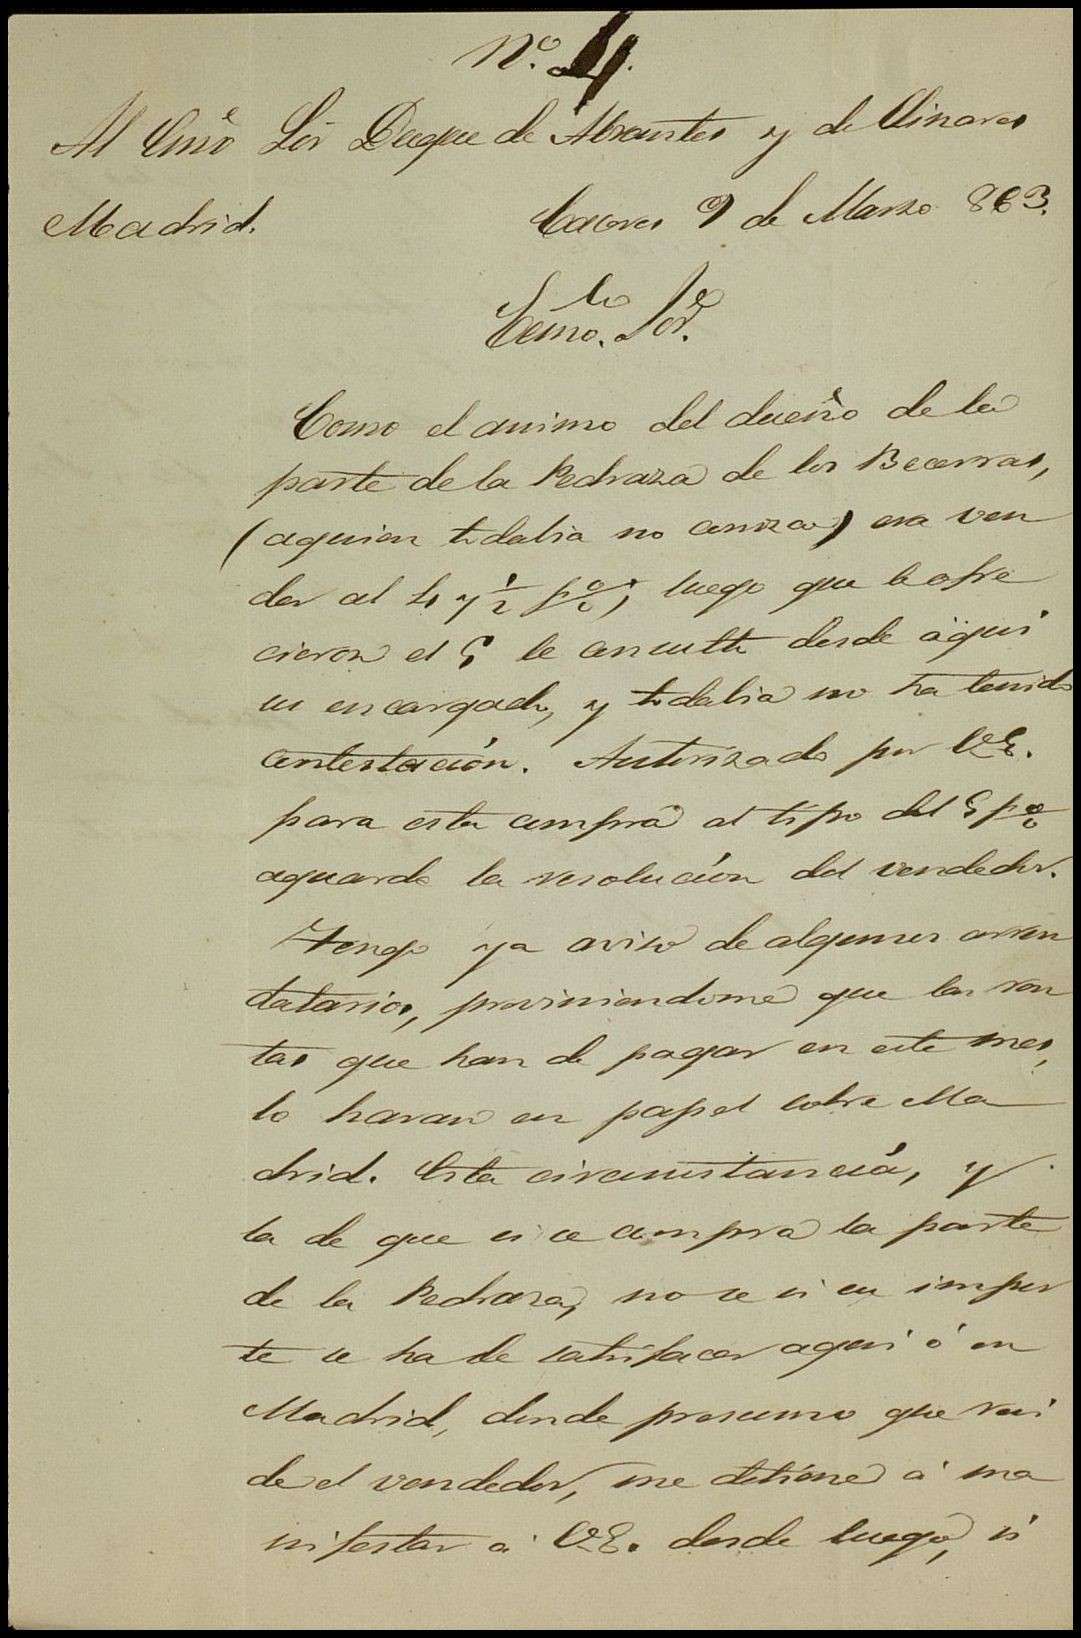 Nº 4.
Al Exmo Sor Duque de Abrantes y de Linares
Madrid.
Caceres 9 de Marzo 863.
Exmo. Sor.
Como el animo del dueño de la
parte de la Pedraza de los Becerras,
(aquien todabia no conozco) era ven
der al 4 y 1/2 p%, luego que le ofre
cieron el 5 le consultó desde aqui
su encargado, y todabia no ha tenido
contestación. Autorizado por V.E.
para esta compra al tipo del 5 p%
aguardo la resolución del vendedor.
Tengo ya aviso de algunos arren
datarios, previniendome que las ren
tas que han de pagar en este mes,
lo haran en papel sobre Ma
drid. Esta circunstancia, y
la de que si se compra la parte
de la Pedraza, no se si su impor
te se ha de satisfacer aqui ó en
Madrid, donde presumo que resi
de el vendedor, me detiene á ma
nifestar a V.E. desde luego, si